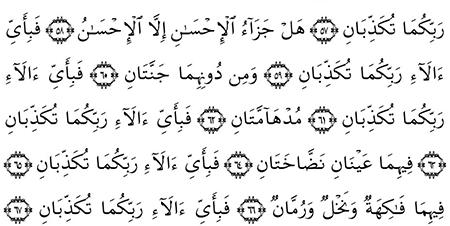 رَبِّكُمَا تُكَذِّبَانِ ٥٧ هَلْ جَزَآءُ ٱلْإِحْسَـٰنِ إِلَّا ٱلْإِحْسَـٰنُ ٥٨ فَبِأَىِّ
ءَالَآءِ رَبِّكُمَا تُكَذِّبَانِ ٥٩ وَمِن دُونِهِمَا جَنَّتَانِ ٦٠ فَبِأَىِّ ءَالَآءِ
رَبِّكُمَا تُكَذِّبَانِ ٦١ مُدْهَآمَّتَانِ ٦٢ فَبِأَىِّ ءَالَآءِ رَبِّكُمَا تُكَذِّبَانِ
٦٣ فِيهِمَا عَيْنَانِ نَضَّاخَتَانِ ٦٤ فَبِأَىِّ ءَالَآءِ رَبِّكُمَا تُكَذِّبَانِ ٦٥
فِيهِمَا فَـٰكِهَةٌ وَنَخْلٌ وَرُمَّانٌ ٦٦ فَبِأَىِّ ءَالَآءِ رَبِّكُمَا تُكَذِّبَانِ ٦٧